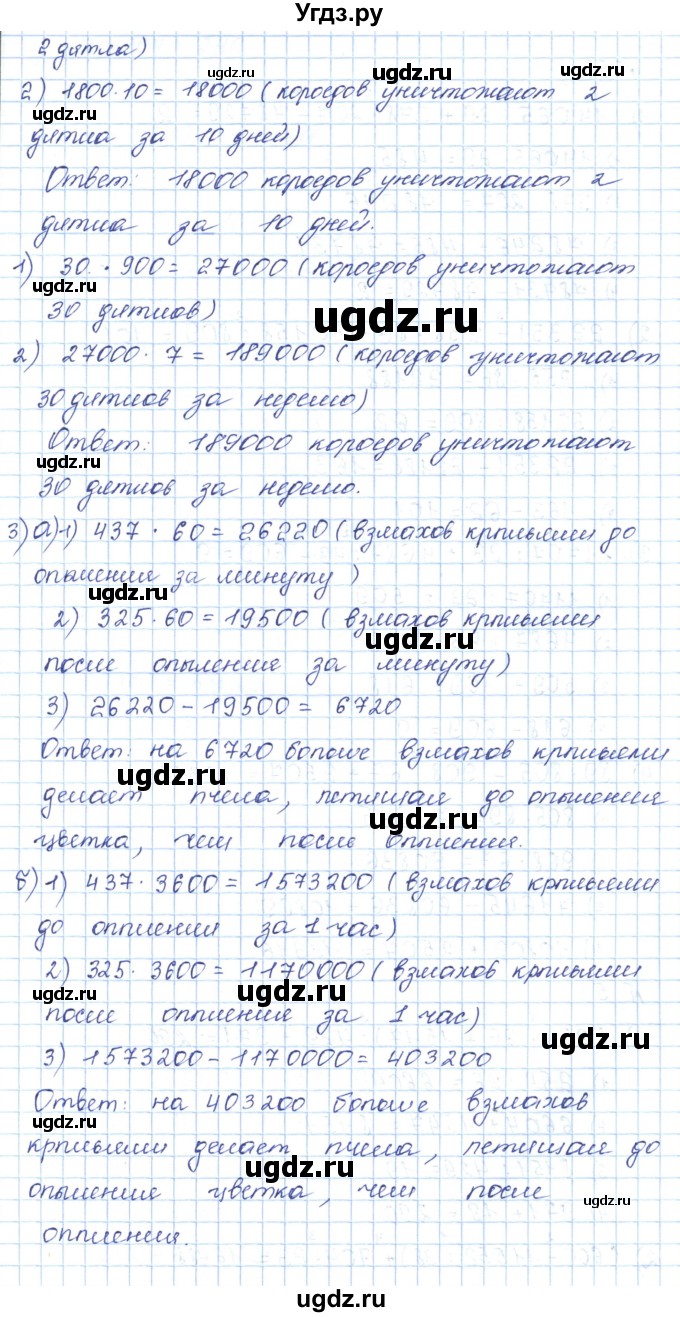 Угдз.ру
2 дятла)
ugdz.ru ugdz.ru ugdz.ru
2) 1800·10 = 18000 (короедов уничтожают 2
ugdz.ru
дятла за 10 дней)
Ответ: 18000 короедов уничтожают 2
дятла за 10 дней.
1) 30 · 900 = 27000 (короедов уничтожают
ugdz.ru
30 дятлов)
ugdz.ru
2) 27000 · 7 = 189000 (короедов уничтожают
30 дятлов за неделю)
Ответ: 189000 короедов уничтожают
ugdz.ru
30 дятлов за неделю.
3) а) 1) 437 · 60 = 26220 (взмахов крыльями до
опыления за минуту)
ugdz.ru
2) 325·60 = 19500 (взмахов крыльями
ugdz.ru
после опыления за минуту)
3) 26220 - 19500 = 6720
Ответ: на 6720 больше взмахов крыльями
ugdz.ru
делает пчела, летящая до опыления
ugdz.ru
цветка, чем после опыления.
б) 1) 437 · 3600 = 1573200 (взмахов крыльями
до опыления за 1 час)
2) 325 · 3600 = 1170000 (взмахов крыльями
ugdz.ru ugdz.ru
после опыления за 1 час)
ugdz.ru
3) 1573200 - 1170000 = 403200
Ответ: на 403200 больше взмахов
ugdz.ru
крыльями делает пчела, летящая до
ugdz.ru
опыления цветка, чем после
ugdz.ru
опыления.